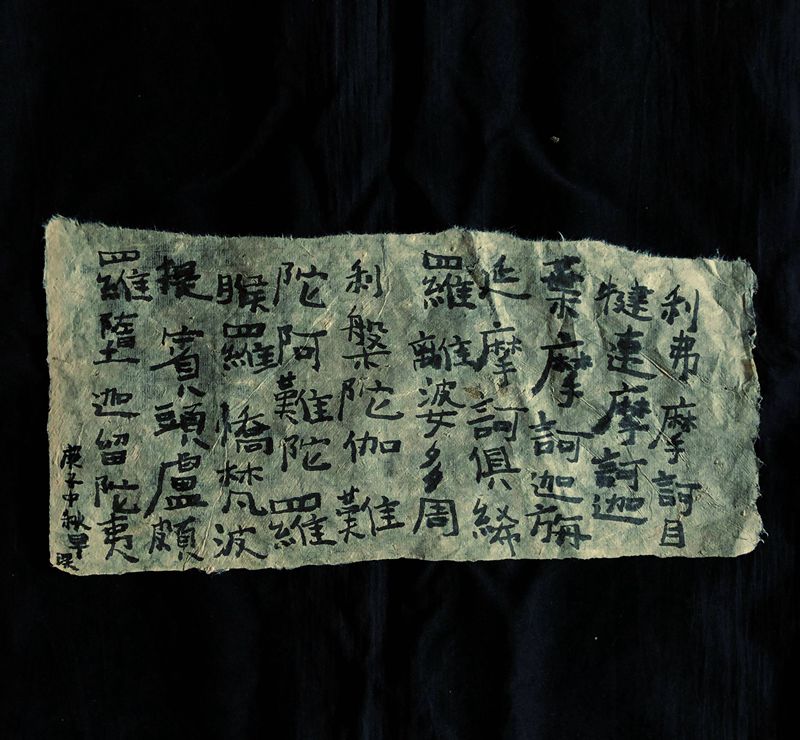 利弗摩訶目
犍連摩訶迦
葉摩訶迦旃
延摩訶俱絺
羅離婆多周
利槃陀伽難
陀阿難陀羅
睺羅憍梵波
提賓頭盧頗
羅墮迦留陀夷
庚子中秋早